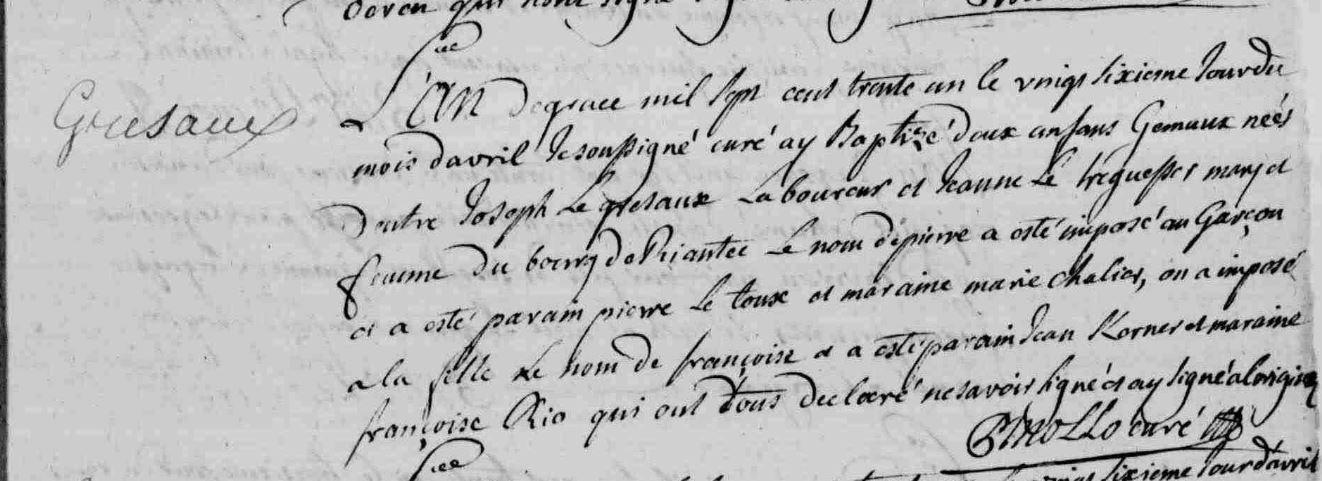 qui n'ont signé
Gresaux
L'AN de grace mil sept cent trente un le vingt sixieme Jour du
mois davril Je soussigné curé ay Baptizé deux enfans Gemeaux néés
Dentre Joseph Le gresaux Laboureur et Jeanne Le treguesser mary et
feme du bourg de Riantec Le nom de pierre a esté imposé au Garçon
et a esté parain pierre Le toux et maraine marie chalier, on a imposé
a la fille Le nom de françoise et a esté parain Jean Korner et maraine
françoise Rio qui ont tous declaré ne savoir signé et ay signé a lorigin
curé
vingt sixieme Jour davril